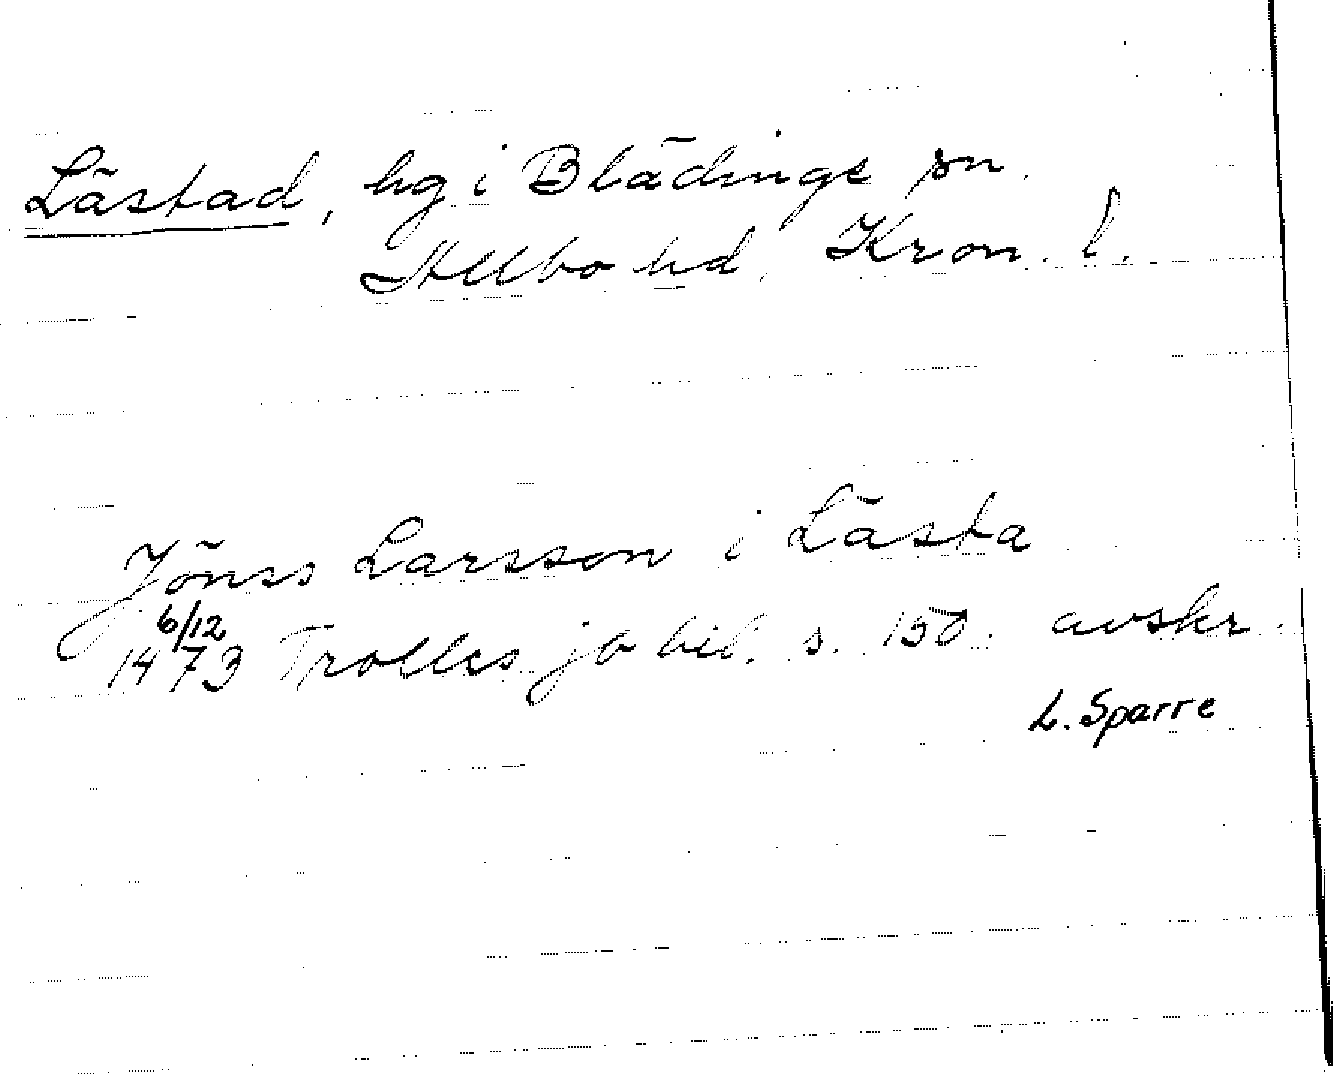 Lästad, hg i Blädinge sn.
Allbo hd, Kron. l.
Jönss Larsson i Lästa
6/12
1473 Trolles jb bil. s. 150. avskr.
L. Sparre